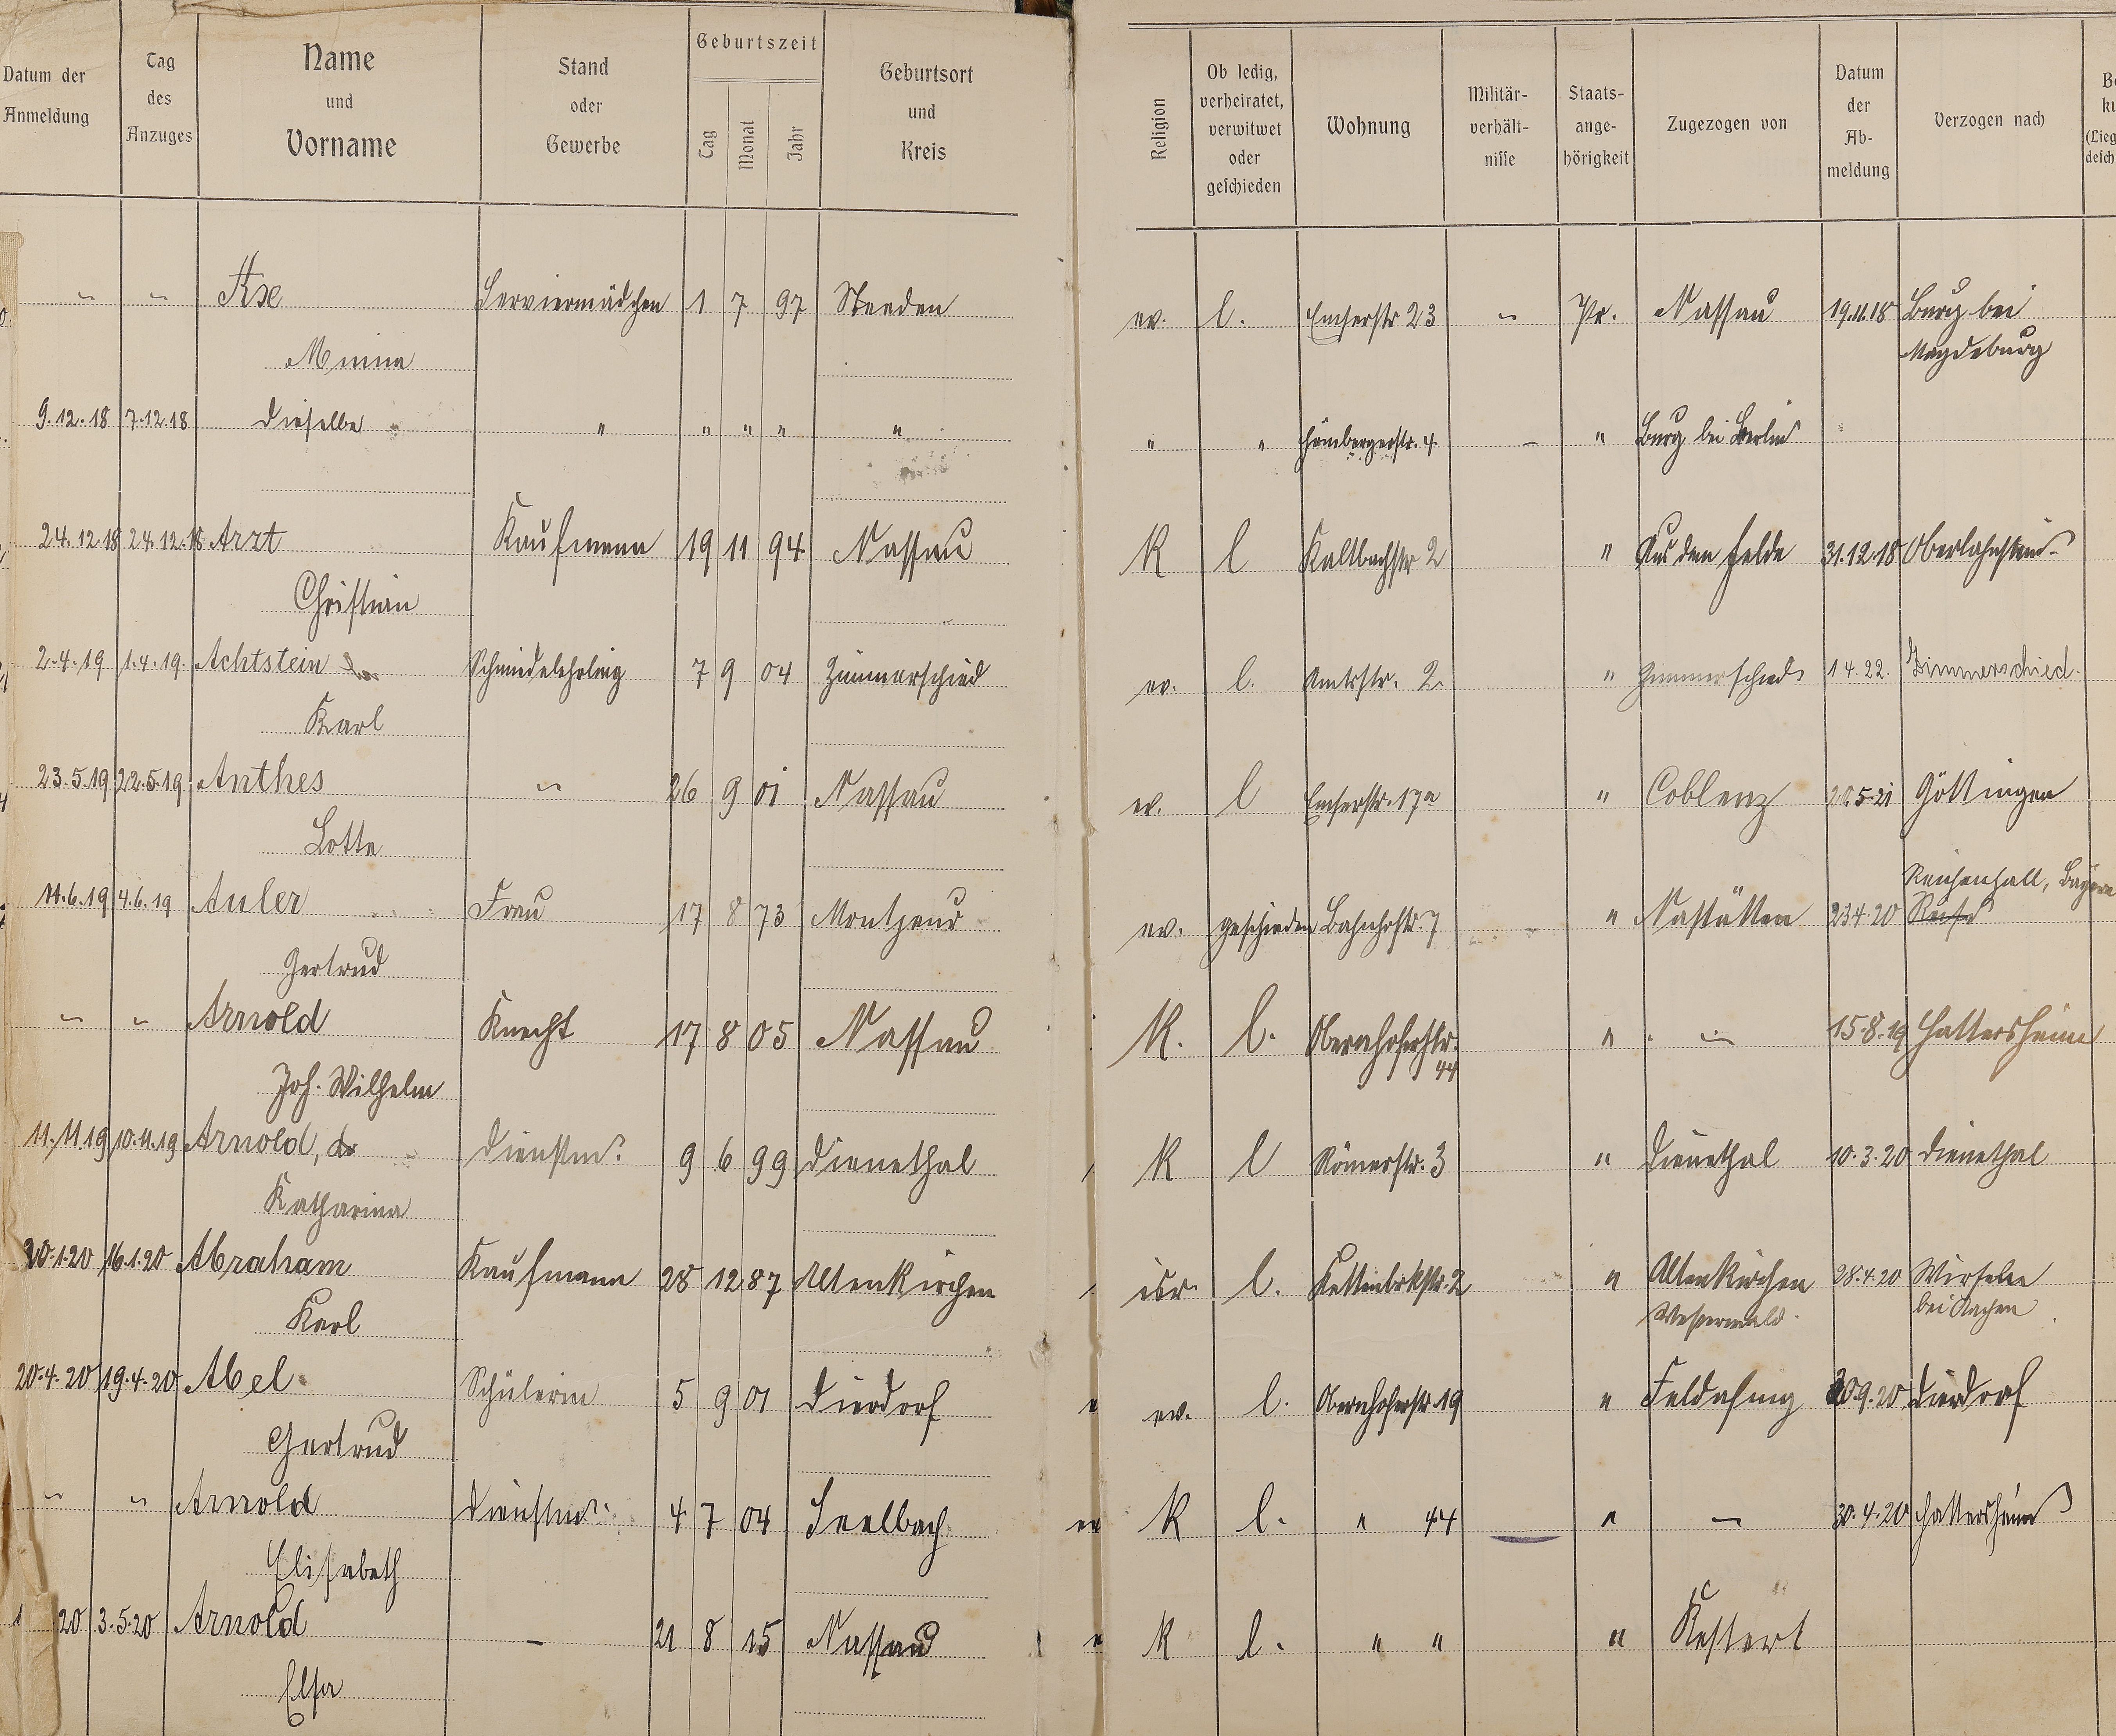 Datum der Anmeldung
Tag des Anzuges
Name und Vorname
Stand oder Gewerbe
Geburtszeit
Tag Monat Jahr
Geburtsort und Kreis
Religion
Ob ledig, verheiratet, verwitwet oder geschieden
Wohnung
Militär-verhält-nisse
Staats-ange-hörigkeit
Zugezogen von
Datum der Ab-meldung
Verzogen nach
" " Axe Serviermädchen 1 7 97 Steeden ev. l. Emserstr 23 " Pr. Nassau 19.11.18 Burg bei
Minna Magdeburg
9.12.18 7.12.18 Dieselbe " " " " " " " Hömbergerstr. 4 – " Burg bei Berlin
24.12.18 24.12.18 Arzt Kaufmann 19 11 94 Nassau K l Kaltbachstr 2 " Aus dem Felde 31.12.18 Oberlahnstein
Christian
2.4.19 1.4.19 Achtstein Schmiedelehrling 7 9 04 Zimmerschied ev. l. Amtsstr. 2 " Zimmerschied 1.4.22. Zimmerschied.
Karl
23.5.19 22.5.19 Anthes " 26 9 01 Nassau ev. l Emserstr. 17a " Coblenz 20.5.21 Göttingen
Lotte
Reichenhall, Bayern
11.6.19 4.6.19 Auler Frau 17 8 73 ev. geschieden Bahnhofstr. 7 " Nastätten 23.4.20
Gertrud
" " Arnold Knecht 17 8 05 Nassau K. l. Obernhoferstr. " " 15.8.19 Hattersheim
44
Joh. Wilhelm
11.11.19 10.11.19 Arnold, Dienstm. 9 6 99 Dienethal K l Römerstr. 3 " Dienethal 10.3.20 Dienethal
Katharina
20.1.20 16.1.20 Abraham Kaufmann 28 12 87 Altenkirchen isr. l. 2 " Altenkirchen 28.4.20 Würselen
Karl Westerwald. bei Aachen
20.4.20 19.4.20 Abel Schülerin 5 9 01 Dierdorf ev. l. Obernhoferstr. 19 " Feldafing 30.9.20 Dierdorf
Gertrud
" " Arnold Dienstm. 4 7 04 Seelbach K l. " 44 " – 30.4.20 Hattersheim
Elisabeth
20 3.5.20 Arnold – 21 8 15 Nassau K l. " " " Kestert
Elsa